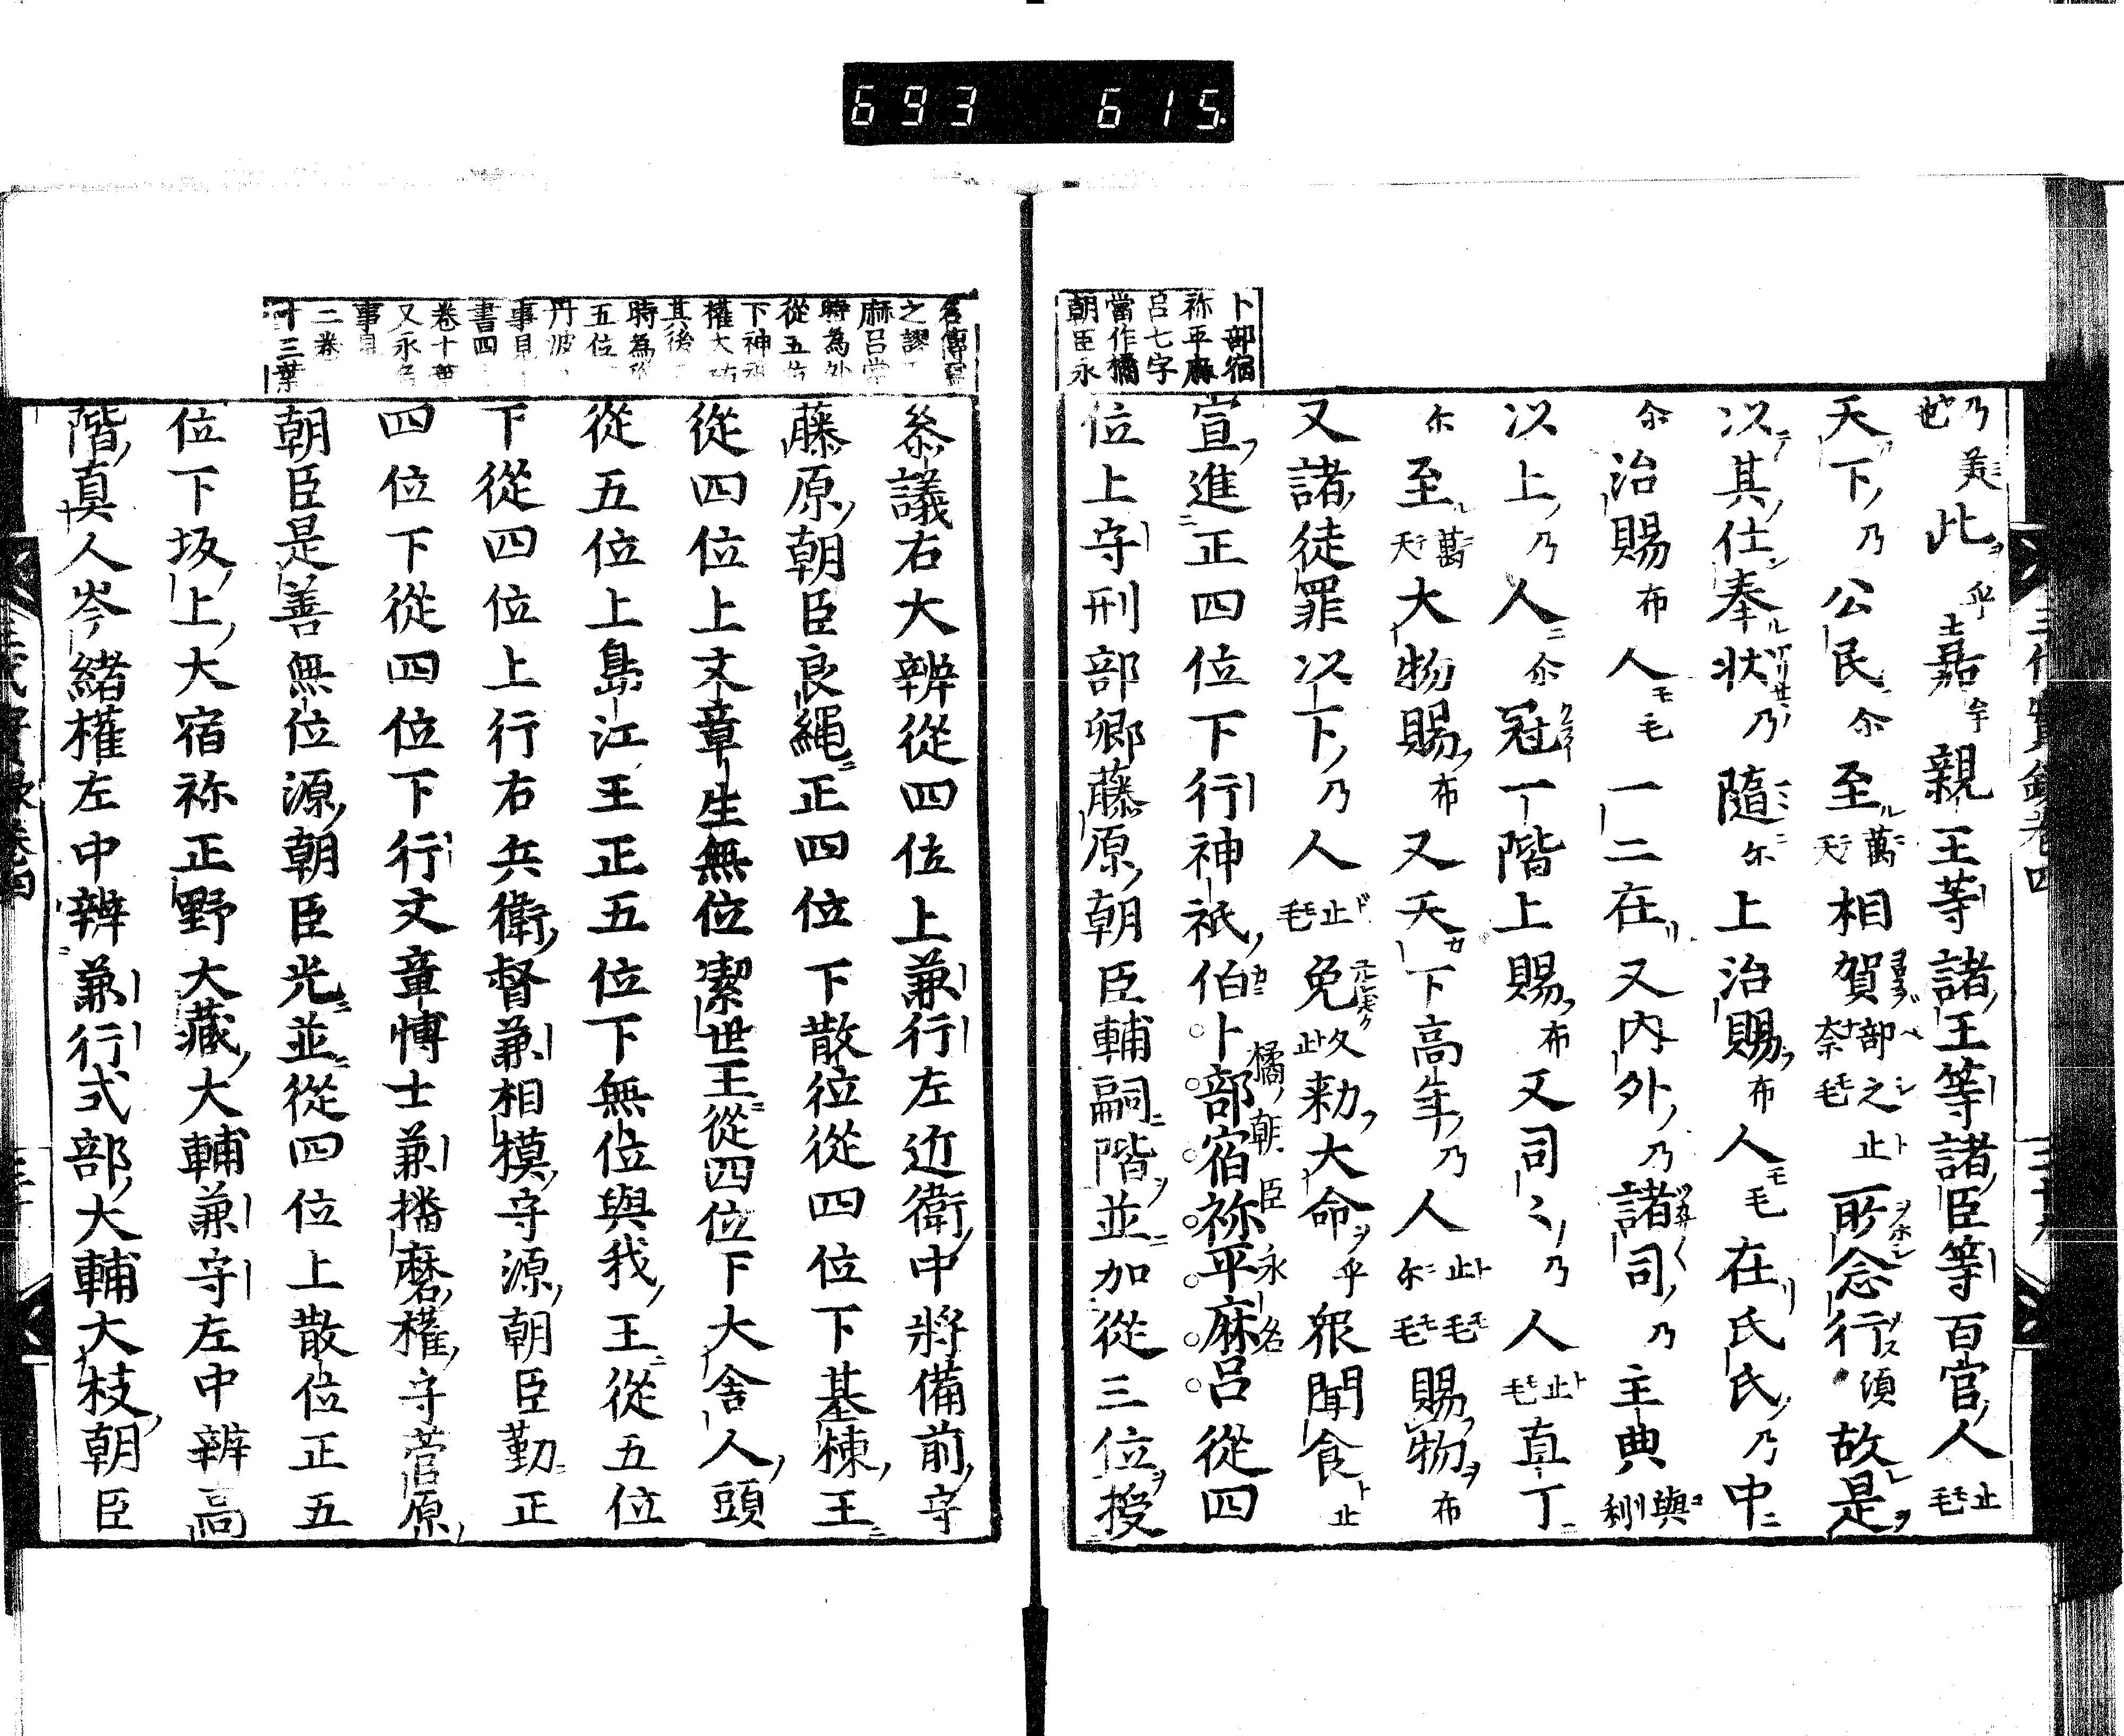 693 615
卜部宿
祢平麻
呂七字
當作橘
朝臣永
乃世美此乎嘉牟親王等諸王等諸臣等百官人止毛
天下乃公民尒至萬天相賀部奈之毛止所念行須故是
以其仕奉狀乃隨尓上治賜布人毛在氏氏乃中
尒治賜布人毛一二在又内外乃諸司乃主典與利
以上乃人尒冠一階上賜布又司〻乃人止毛直丁
尓至萬天大物賜布又天下高年乃人止毛尓毛賜物布
又諸徒罪以下乃人止毛免久止勅大命乎衆聞食止
宣進正四位下行神祇伯卜部宿祢平麻呂從四
橘朝臣永名
位上守刑部卿藤原朝臣輔嗣階並加從三位授
之謬
麻呂當
時為外
從五位
下神祇
權大祐
其後
時為
五位
丹波
事見
書四
卷十葉
又永名
事見
二卷
十三葉
叅議右大辨從四位上兼行左近衛中將備前守
藤原朝臣良繩正四位下散位從四位下基棟王
從四位上文章生無位潔世王從四位下大舎人頭
從五位上島江王正五位下無位與我王從五位
下從四位上行右兵衛督兼相摸守源朝臣勤正
四位下從四位下行文章博士兼播磨權守菅原
朝臣是善無位源朝臣光並從四位上散位正五
位下坂上大宿祢正野大藏大輔兼守左中辨高
階真人岑緒權左中辨兼行式部大輔大枝朝臣